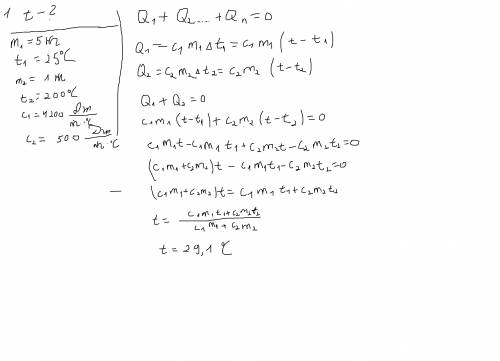 1 t - ?
m₁ = 5 кг
t₁ = 25°C
m₂ = 1 кг
t₂ = 200°C
c₁ = 4200 Дж/кг·°C
c₂ = 500 Дж/кг·°C
Q₁ + Q₂ .... + Qₙ = 0
Q₁ = c₁ m₁ Δt₁ = c₁ m₁ (t - t₁)
Q₂ = c₂ m₂ Δt₂ = c₂ m₂ (t - t₂)
Q₁ + Q₂ = 0
c₁ m₁ (t - t₁) + c₂ m₂ (t - t₂) = 0
c₁ m₁ t - c₁ m₁ t₁ + c₂ m₂ t - c₂ m₂ t₂ = 0
(c₁ m₁ + c₂ m₂) t - c₁ m₁ t₁ - c₂ m₂ t₂ = 0
— (c₁ m₁ + c₂ m₂) t = c₁ m₁ t₁ + c₂ m₂ t₂
t = c₁ m₁ t₁ + c₂ m₂ t₂ / c₁ m₁ + c₂ m₂
t = 29,1 °C